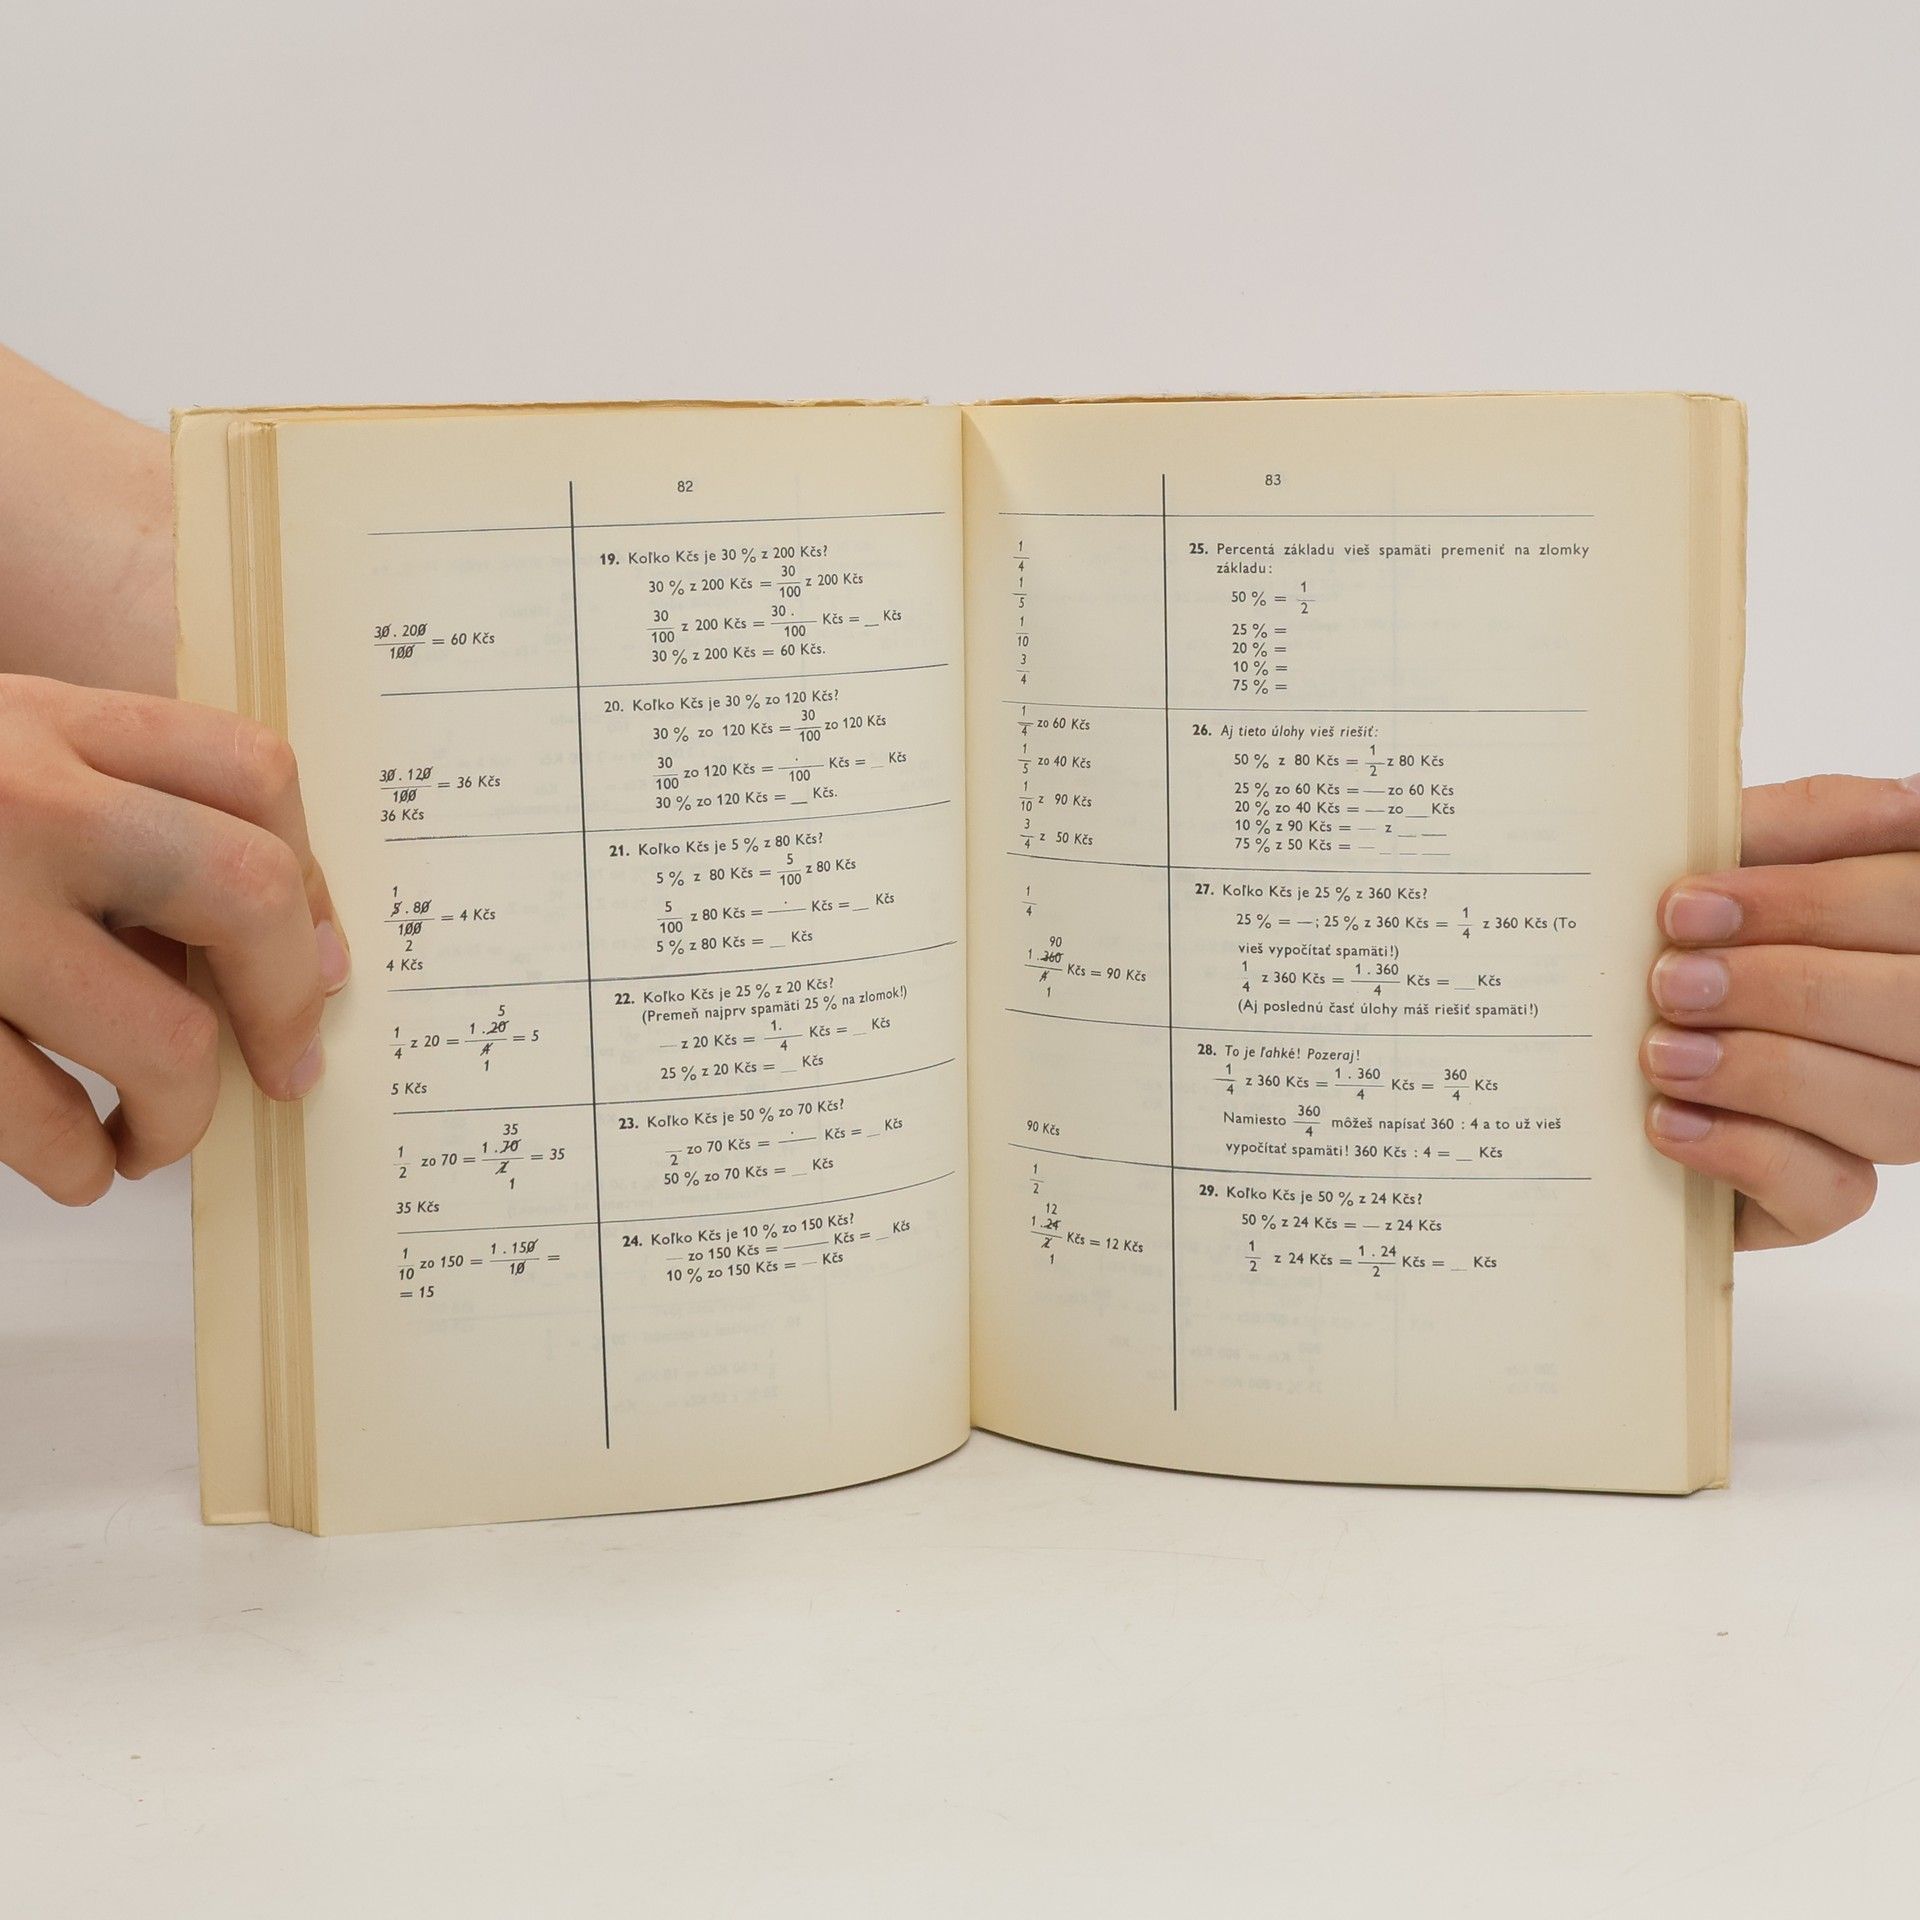 82
19. Koľko Kčs je 30 % z 200 Kčs?
30 % z 200 Kčs = 30/100 z 200 Kčs
30/100 z 200 Kčs = 30 . /100 Kčs = _ Kčs
30 . 200/100 = 60 Kčs
30 % z 200 Kčs = 60 Kčs.
20. Koľko Kčs je 30 % zo 120 Kčs?
30 % zo 120 Kčs = 30/100 zo 120 Kčs
30/100 zo 120 Kčs = . /100 Kčs = _ Kčs
30 . 120/100 = 36 Kčs
30 % zo 120 Kčs = __ Kčs.
36 Kčs
21. Koľko Kčs je 5 % z 80 Kčs?
5 % z 80 Kčs = 5/100 z 80 Kčs
1
5/100 z 80 Kčs = . Kčs = __ Kčs
5 . 80/100 = 4 Kčs
2
5 % z 80 Kčs = __ Kčs
4 Kčs
22. Koľko Kčs je 25 % z 20 Kčs?
(Premeň najprv spamäti 25 % na zlomok!)
5
— z 20 Kčs = 1. /4 Kčs = __ Kčs
1/4 z 20 = 1 . 20/4 = 5
1
25 % z 20 Kčs = __ Kčs
5 Kčs
23. Koľko Kčs je 50 % zo 70 Kčs?
35
/2 zo 70 Kčs = . Kčs = __ Kčs
1/2 zo 70 = 1 . 70/2 = 35
1
50 % zo 70 Kčs = __ Kčs
35 Kčs
24. Koľko Kčs je 10 % zo 150 Kčs?
— zo 150 Kčs = ____ Kčs = __ Kčs
1/10 zo 150 = 1 . 150/10 =
10 % zo 150 Kčs = — Kčs
= 15
83
25. Percentá základu vieš spamäti premeniť na zlomky
základu:
50 % = 1/2
1/4
25 % =
1/5
20 % =
1/10
10 % =
3/4
75 % =
26. Aj tieto úlohy vieš riešiť:
50 % z 80 Kčs = 1/2 z 80 Kčs
1/4 zo 60 Kčs
25 % zo 60 Kčs = — zo 60 Kčs
1/5 zo 40 Kčs
20 % zo 40 Kčs = — zo __ Kčs
1/10 z 90 Kčs
10 % z 90 Kčs = — z __ __
3/4 z 50 Kčs
75 % z 50 Kčs = — _ __ __
27. Koľko Kčs je 25 % z 360 Kčs?
1/4
25 % = —; 25 % z 360 Kčs = 1/4 z 360 Kčs (To
vieš vypočítať spamäti!)
90
1 . 360/4 Kčs = 90 Kčs
1
1/4 z 360 Kčs = 1 . 360/4 Kčs = __ Kčs
(Aj poslednú časť úlohy máš riešiť spamäti!)
28. To je ľahké! Pozeraj!
1/4 z 360 Kčs = 1 . 360/4 Kčs = 360/4 Kčs
Namiesto 360/4 môžeš napísať 360 : 4 a to už vieš
90 Kčs
vypočítať spamäti! 360 Kčs : 4 = __ Kčs
29. Koľko Kčs je 50 % z 24 Kčs?
1/2
50 % z 24 Kčs = — z 24 Kčs
12
1 . 24/2 Kčs = 12 Kčs
1
1/2 z 24 Kčs = 1 . 24/2 Kčs = __ Kčs